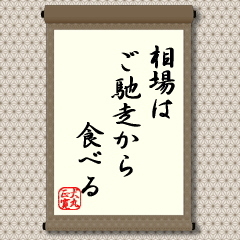 相場は
ご馳走から
食べる